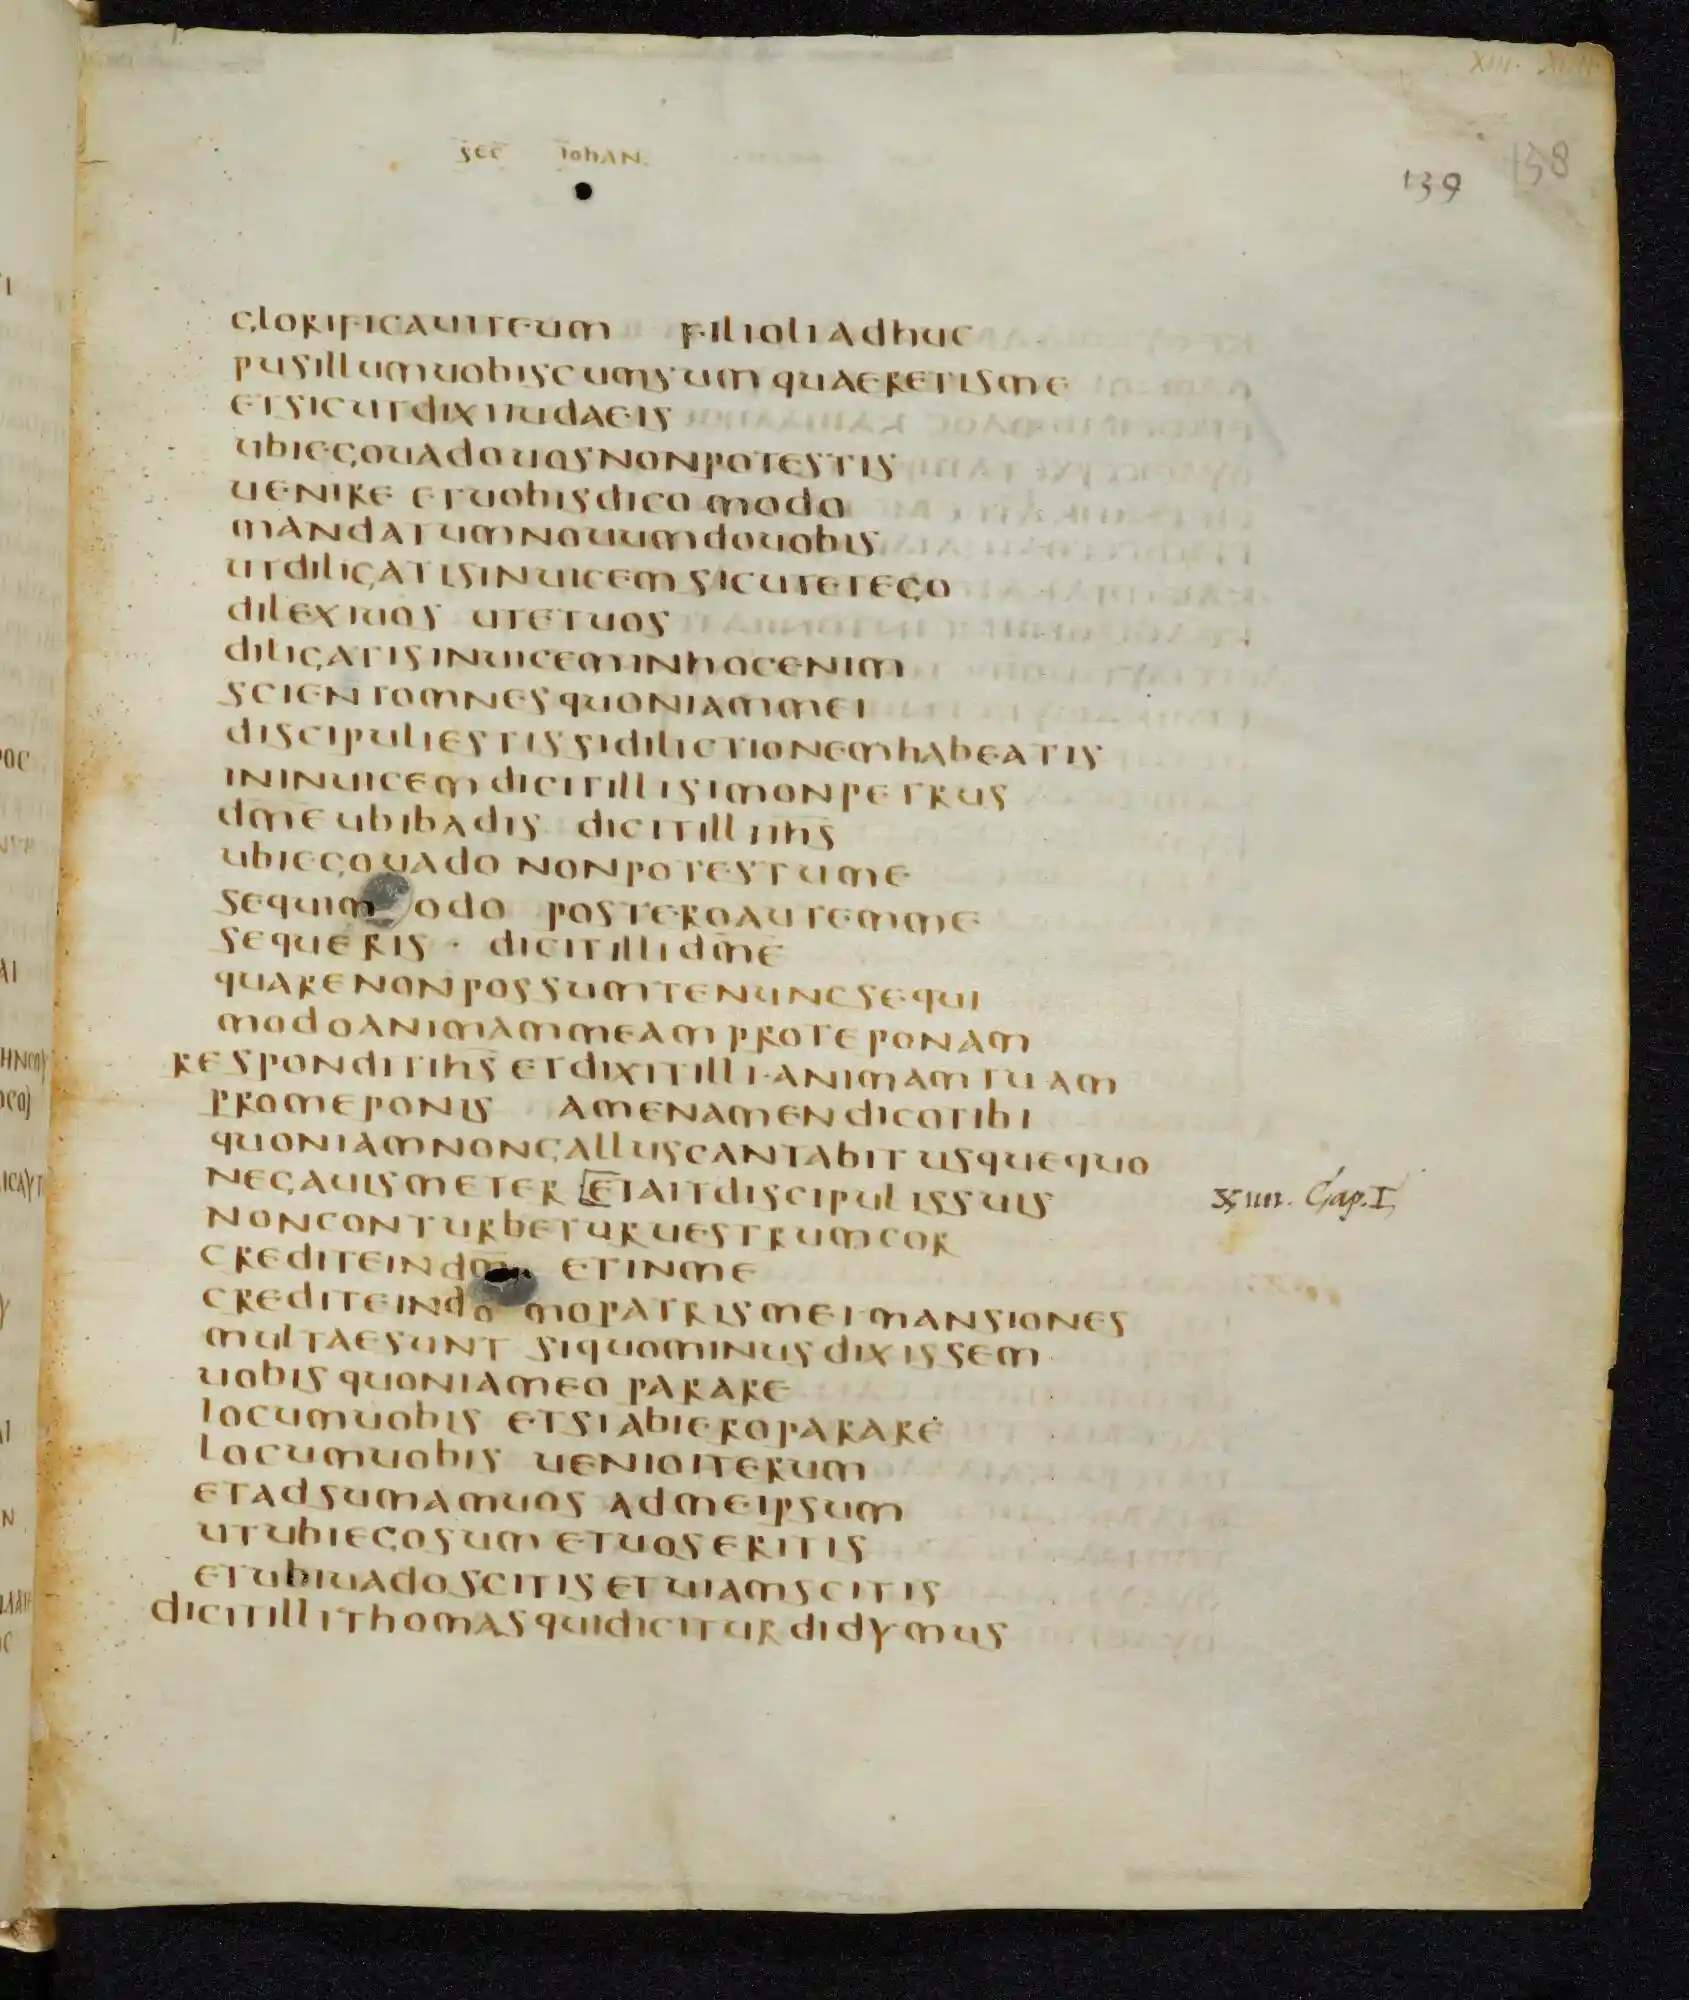 sec̄ iohAN.
139 138
XIII. XIIII.
glorificauit eum filioli adhuc
pusillum uobiscum sum quaeretis me
et sicut dixi iudaeis
ubi ego uado uos non potestis
uenire et uobis dico modo
mandatum nouum do uobis
ut diligatis inuicem sicut et ego
dilexi uos ut et uos
diligatis inuicem in hoc enim
scient omnes quoniam mei
discipuli estis si dilictionem habeatis
in inuicem dicit illi simon petrus
dm̄e ubi badis dicit illi ih̄s
ubi ego uado non potes tu me
sequi modo postero autem me
sequeris · dicit illi dm̄e
quare non possum te nunc sequi
modo animam meam pro te ponam
respondit ih̄s et dixit illi · animam tuam
pro me ponis amen amen dico tibi
quoniam non gallus cantabit usque quo
negauis me ter [et ait discipulis suis
non conturbetur uestrum cor
credite in dm̄ et in me
credite in domo patris mei mansiones
multae sunt si quo minus dixissem
uobis quoniam eo parare
locum uobis et si abiero parare
locum uobis uenio iterum
et adsumam uos ad me ipsum
ut ubi ego sum et uos eritis
et ubi uado scitis et uiam scitis
dicit illi thomas qui dicitur didymus
xiiii. Cap. I